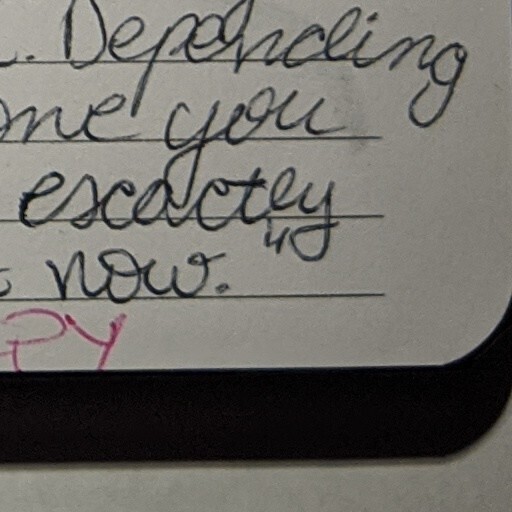 . Depending
one you
escactly
now.
PY